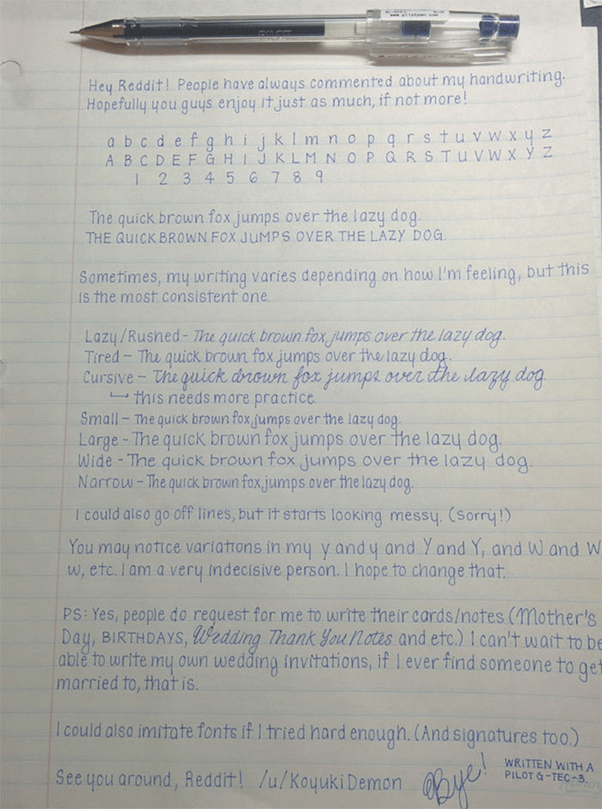 www.pilotpen.com
PILOT
Hey Reddit! People have always commented about my handwriting.
Hopefully you guys enjoy it just as much, if not more!
a b c d e f g h i j k l m n o p q r s t u v w x y z
A B C D E F G H I J K L M N O P Q R S T U V W X Y Z
1 2 3 4 5 6 7 8 9
The quick brown fox jumps over the lazy dog.
THE QUICK BROWN FOX JUMPS OVER THE LAZY DOG.
Sometimes, my writing varies depending on how I'm feeling, but this
is the most consistent one.
Lazy/Rushed - The quick brown fox jumps over the lazy dog.
Tired - The quick brown fox jumps over the lazy dog.
Cursive - The quick brown fox jumps over the lazy dog.
↳ this needs more practice.
Small - The quick brown fox jumps over the lazy dog.
Large - The quick brown fox jumps over the lazy dog.
Wide - The quick brown fox jumps over the lazy dog.
Narrow - The quick brown fox jumps over the lazy dog.
I could also go off lines, but it starts looking messy. (Sorry!)
You may notice variations in my y and y and Y and Y, and W and W
w, etc. I am a very indecisive person. I hope to change that.
PS: Yes, people do request for me to write their cards/notes (Mother's
Day, BIRTHDAYS, Wedding Thank You Notes and etc.) I can't wait to be
able to write my own wedding invitations, if I ever find someone to get
married to, that is.
I could also imitate fonts if I tried hard enough. (And signatures too.)
See you around, Reddit! /u/KoyukiDemon Bye!
WRITTEN WITH A
PILOT G-TEC-3.